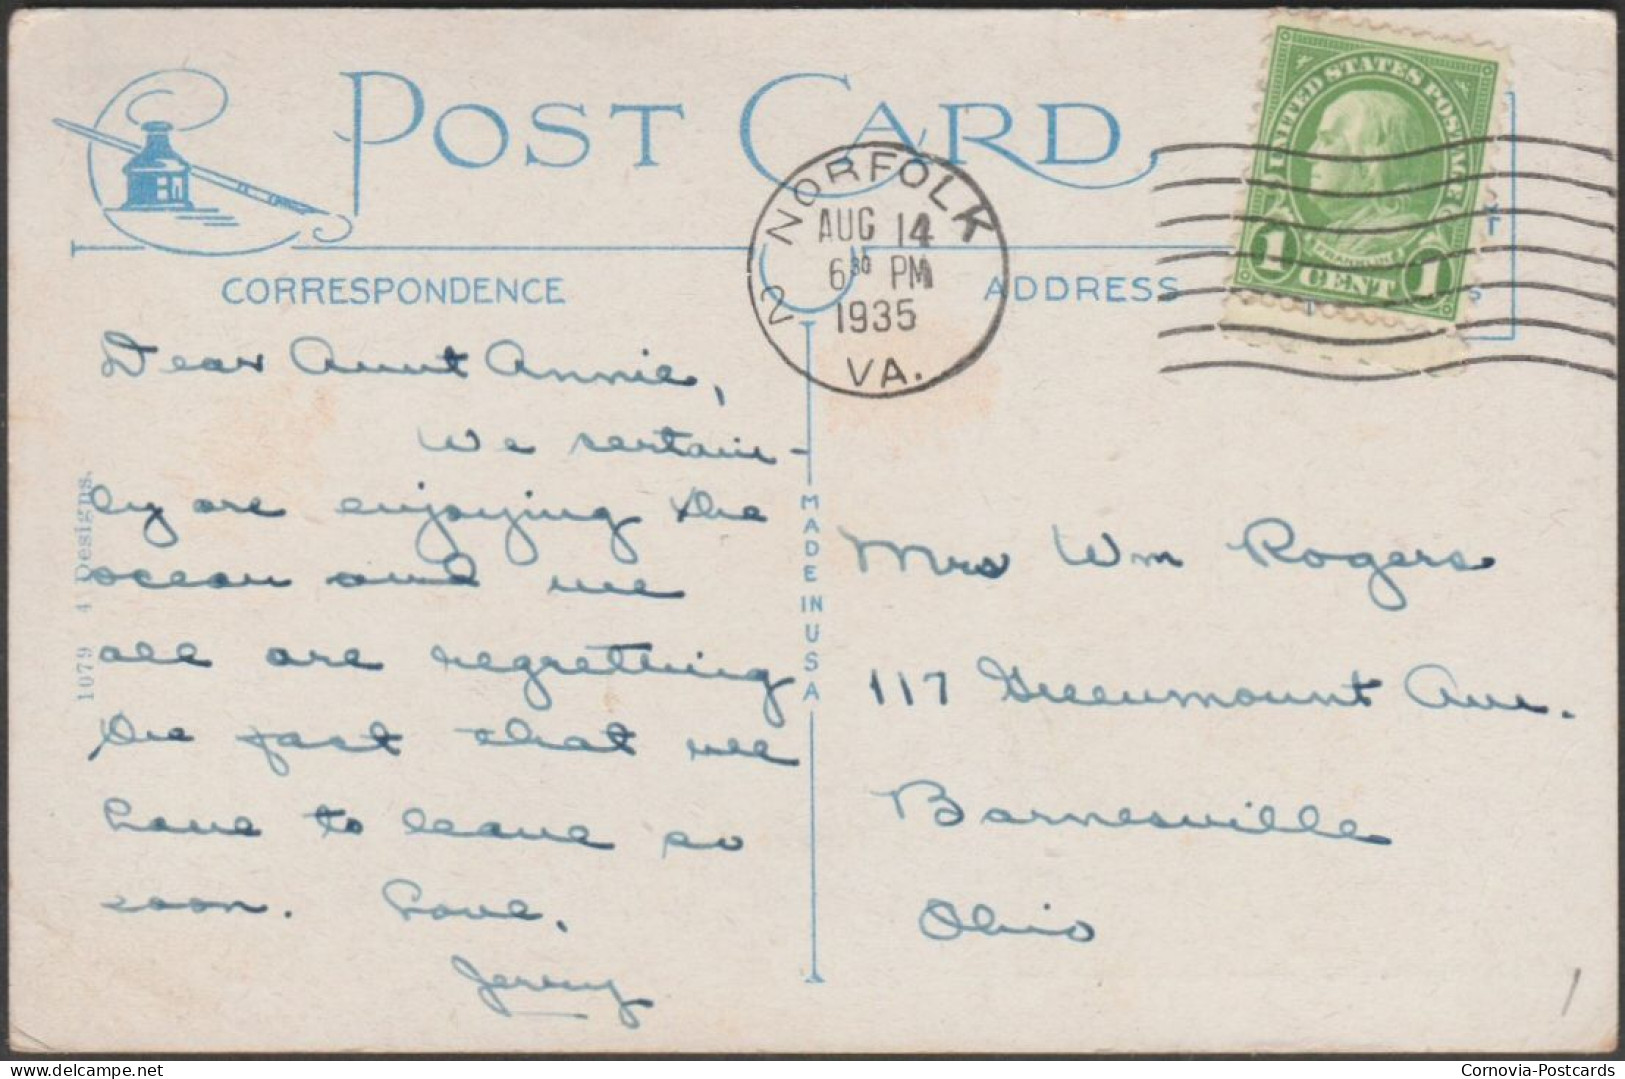 POST CARD
CORRESPONDENCE
ADDRESS
UNITED STATES POSTAGE
FRANKLIN
1 CENT 1
2 NORFOLK
AUG 14
6 30 PM
1935
VA.
Dear Aunt Annie,
We certain-
ly are enjoying the
ocean and we
all are regretting
the fact that we
have to leave so
soon. Love,
Jerry
1079 4 Designs.
MADE IN USA
Mrs Wm Rogers
117 Greenmount Ave.
Barnesville
Ohio
1
Cornovia-Postcards